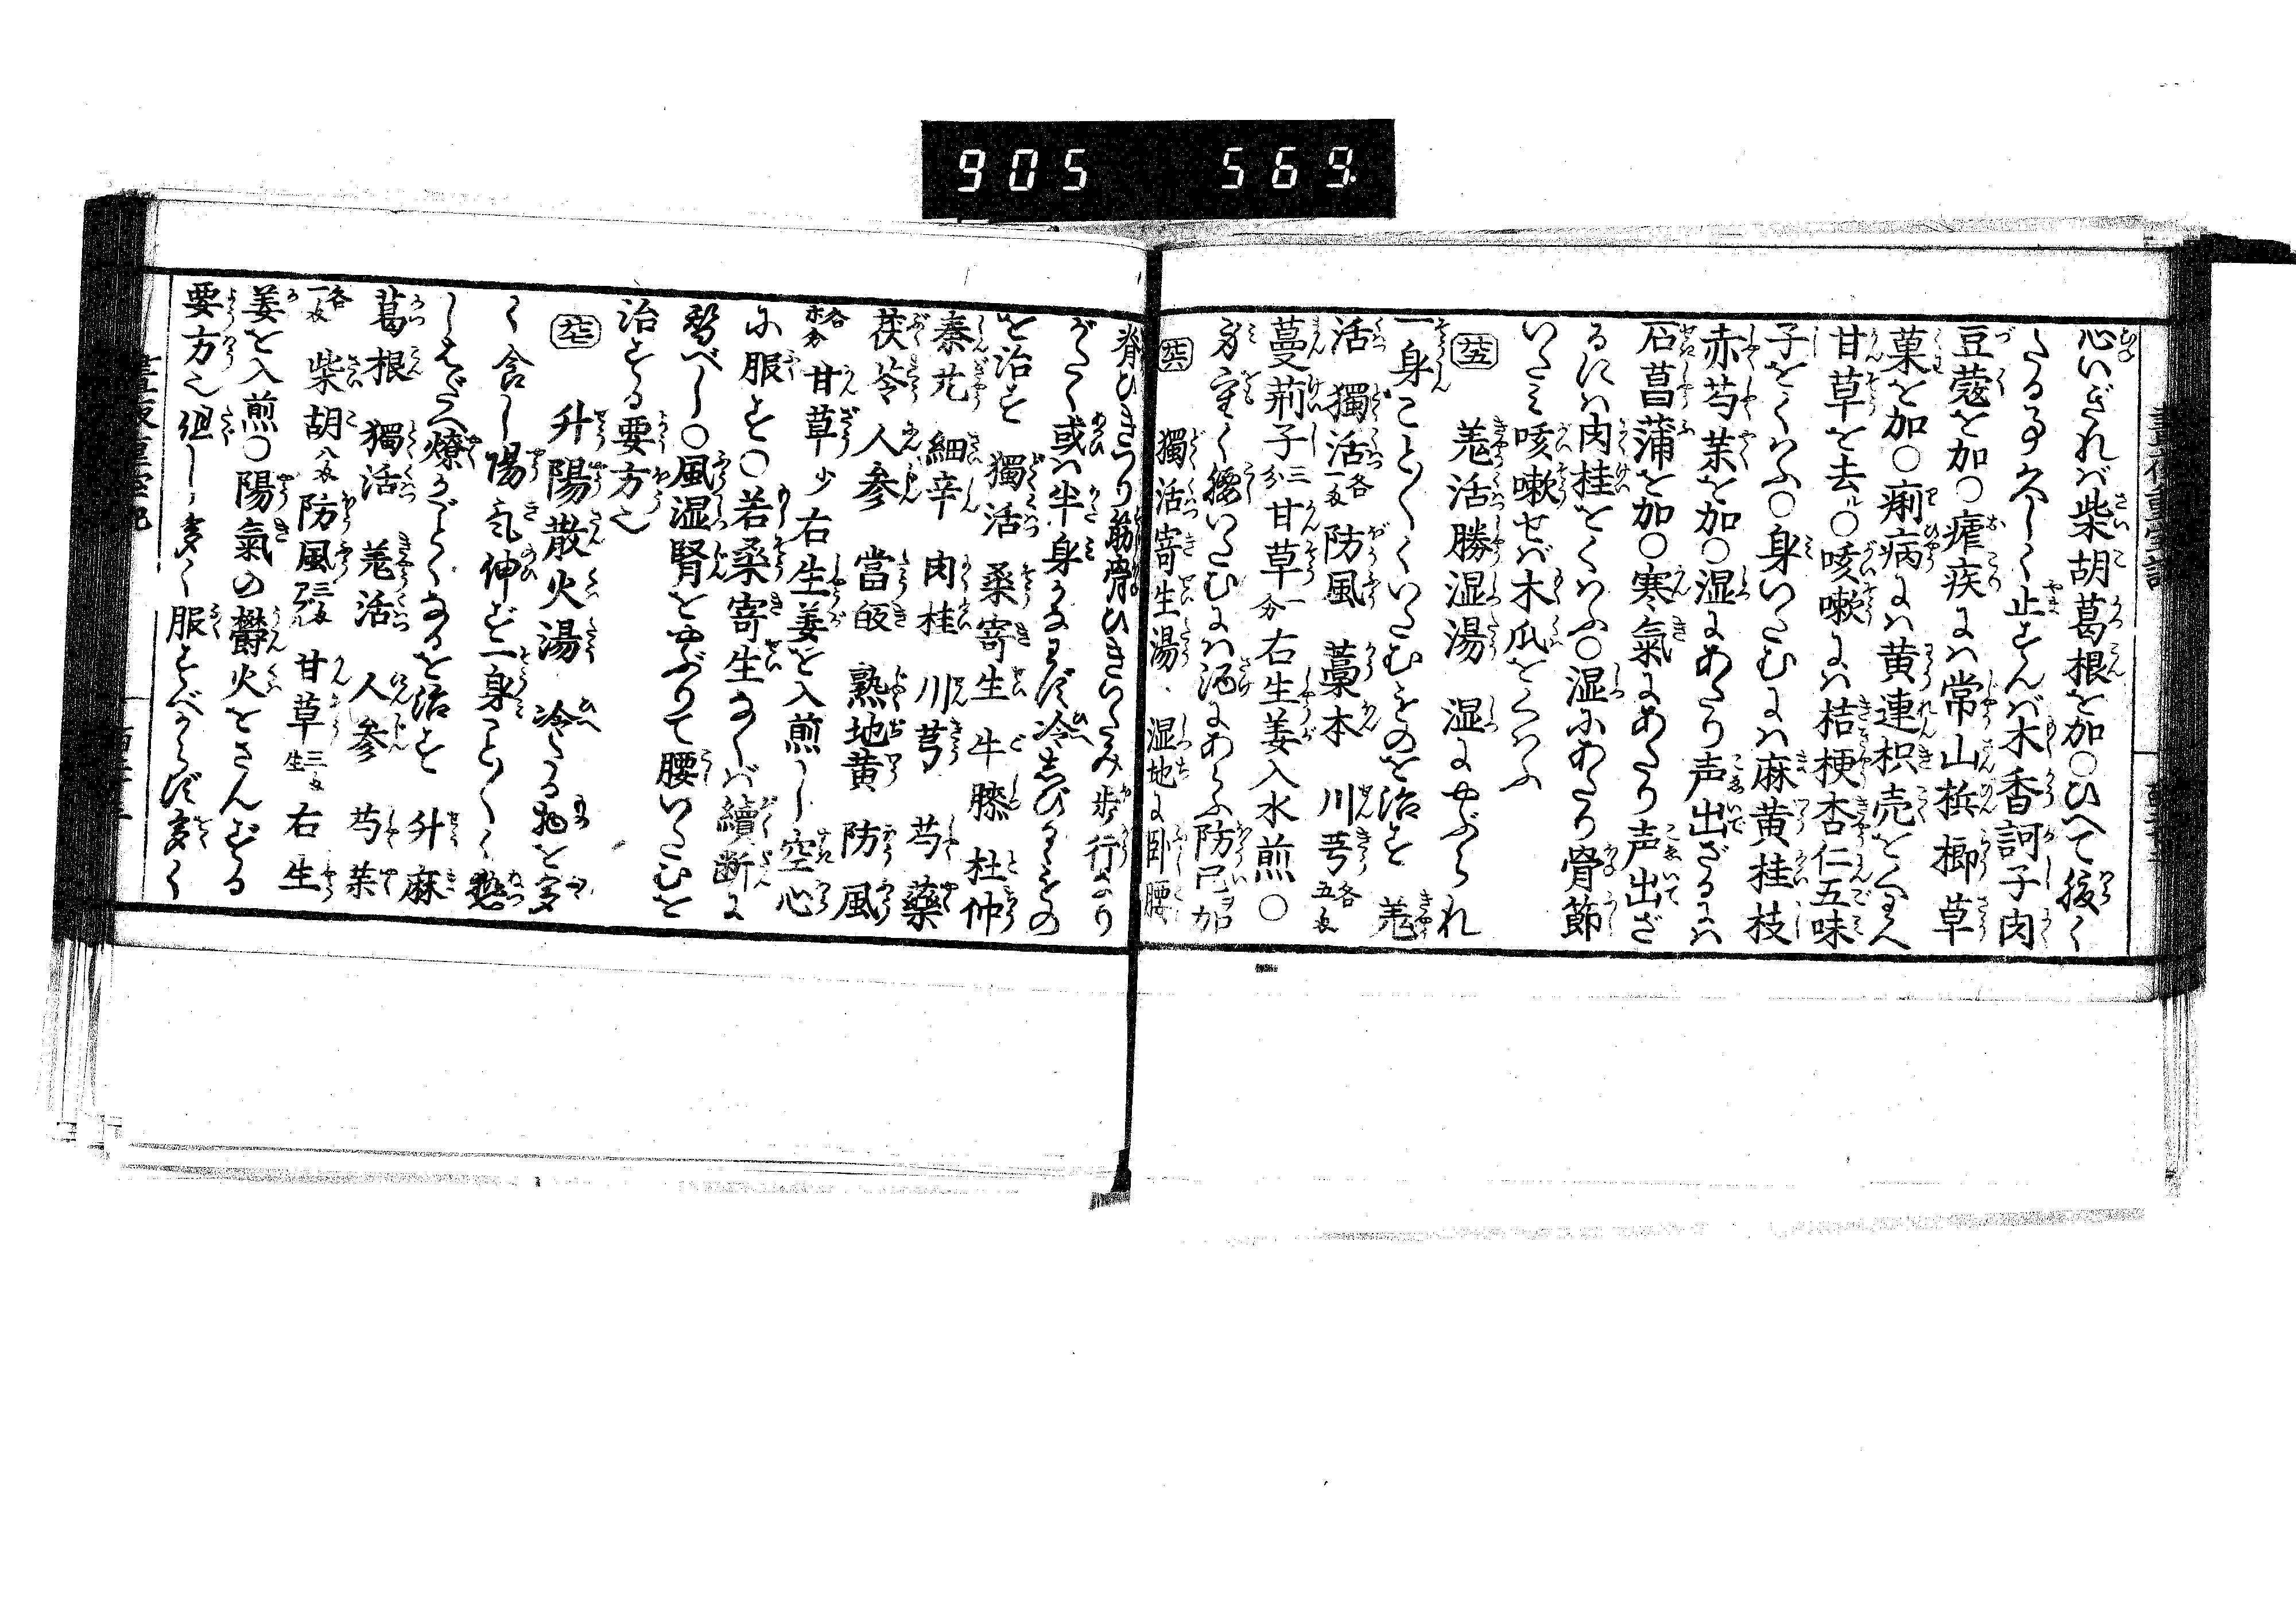 905 569.
心いざれバ柴胡葛根を加〇ひへて後く
たる事久しく止ずんバ木香訶子肉
豆蔻を加〇瘧疾にハ常山梹榔草
菓を加〇痢病にハ黄連枳売をくハへ
甘草を去ル〇咳嗽にハ桔梗杏仁五味
子をくハふ〇身いたむにハ麻黄桂枝
赤芍茱を加〇湿にあたり声出ざるにハ
石菖蒲を加〇寒氣にあたり声出ざ
るにハ肉桂をくハふ〇湿にあたり骨節
いたミ咳嗽せバ木瓜をくハふ
羗活勝湿湯 湿にやぶられ
一身こと〲くいたむものを治す 羗
活 獨活各一匁防風 藁本 川芎各五匁
蔓荊子三分甘草一分右生姜入水煎〇
身重く腰いたむにハ酒にあらふ防已ヲ加
獨活寄生湯 湿地に臥腰
脊ひきつり筋骨ひきいたみ歩行なり
がたく或ハ半身かなはず冷志びるゝもの
を治す 獨活 桑寄生 牛膝 杜仲
秦艽 細辛 肉桂 川芎 芍藥
茯苓 人参 當皈 熟地黄 防風
各 甘草少右生姜を入煎し空心
に服す〇若桑寄生なくバ續断に
替べし〇風湿腎をやぶりて腰いたむを
治する要方也
升陽散火湯 冷たる物を多
く含し陽氣伸ず一身こと〲く熱
し 燎がごとくなるを治す 升麻
葛根 獨活 羗活 人参 芍茱
各一匁 柴胡八匁防風三匁 甘草 生三匁 右生
姜を入煎〇陽氣の欝火をさんずる
要方也但し多く服すべからず多く